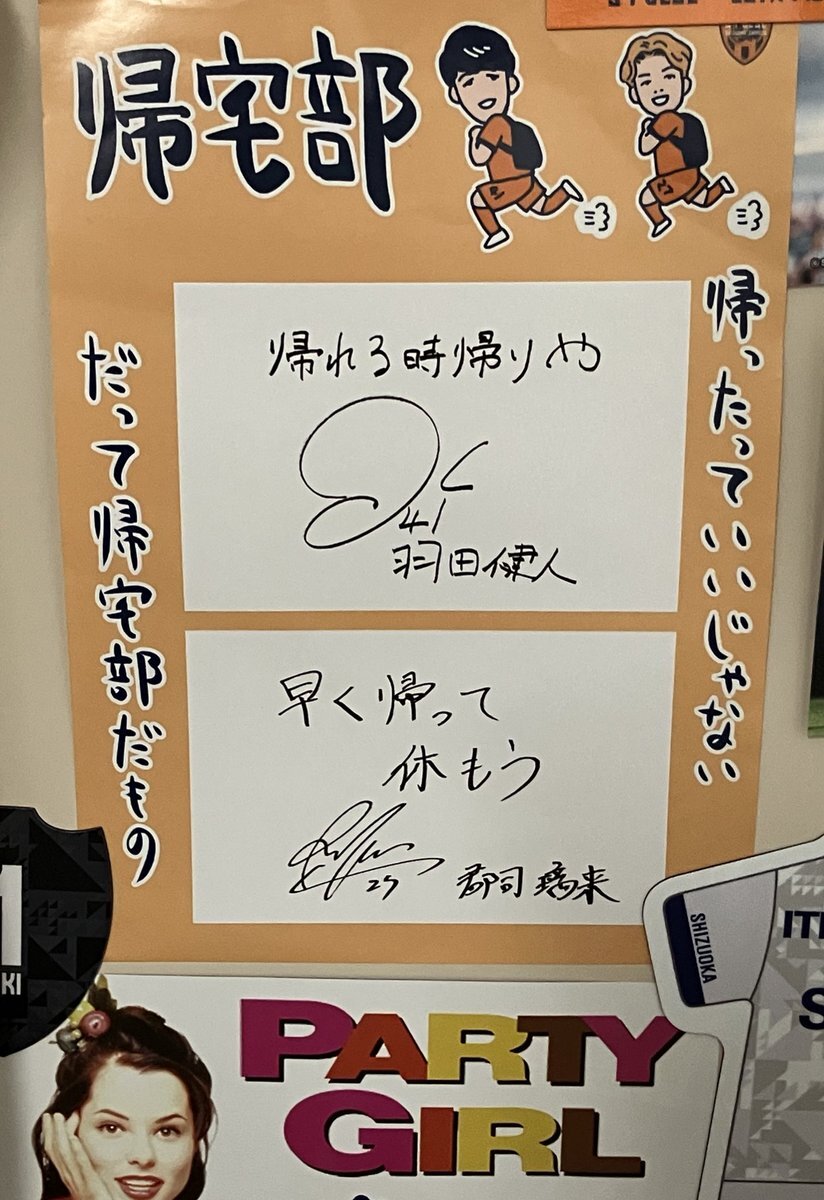 帰宅部
帰ったっていいじゃない
だって帰宅部だもの
帰れる時帰りや
41
羽田健人
早く帰って
休もう
25
郡司璃来
1
KI
SHIZUOKA
PARTY
GIRL